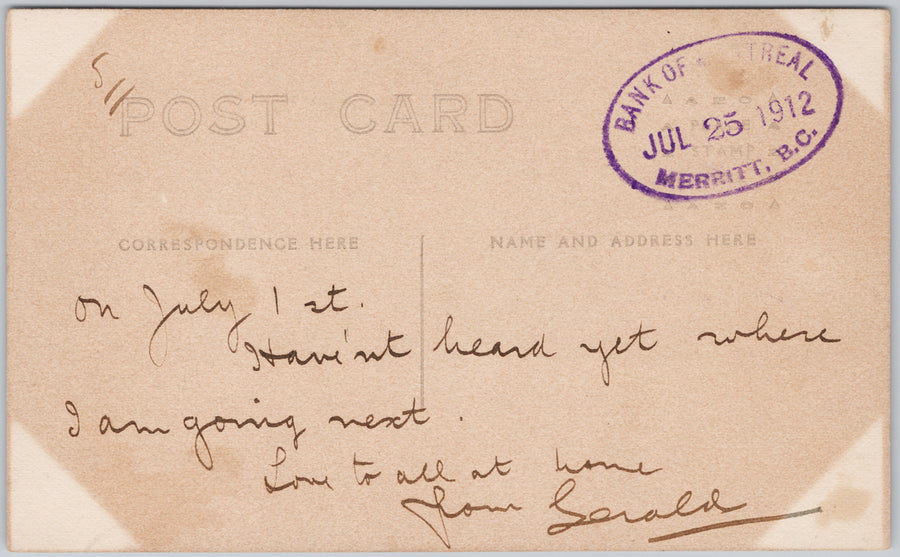 5/
POST CARD
BANK OF MONTREAL
JUL 25 1912
MERRITT, B.C.
STAMP
CORRESPONDENCE HERE
NAME AND ADDRESS HERE
on July 1st.
Have'nt heard yet where
I am going next.
Love to all at home
from Gerald